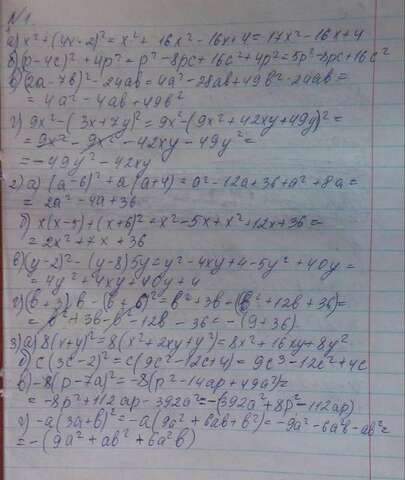 №1
а) x²+(4x-2)²=x²+16x²-16x+4=17x²-16x+4
б) (p-4c)²+4p²=p²-8pc+16c²+4p²=5p²-8pc+16c²
в) (2a-7b)²-24ab=4a²-28ab+49b²-24ab=
=4a²-4ab+49b²
г) 9x²-(3x+7y)²=9x²-(9x²+42xy+49y²)=
=9x²-9x²-42xy-49y²=
=-49y²-42xy
2) а) (a-6)²+a(a+4)=a²-12a+36+a²+8a=
=2a²-4a+36
б) x(x-5)+(x+6)²=x²-5x+x²+12x+36=
=2x²+7x+36
в) (y-2)²-(y-8)5y=y²-4xy+4-5y²+40y=
=4y²+4xy+40y+4
г) (b+3)b-(b+6)²=b²+3b-(b²+12b+36)=
=b²+3b-b²-12b-36=-(9+36)
3) а) 8(x+y)²=8(x²+2xy+y²)=8x²+16xy+8y²
б) c(3c-2)²=c(9c²-12c+4)=9c³-12c²+4c
в) -8(p-7a)²=-8(p²-14ap+49a²)=
=-8p²+112ap-392a²=-(392a²+8p²-112ap)
г) -a(3a+b)²=-a(9a²+6ab+b²)=-9a²-6a²b-ab²=
=-(9a²+ab²+6a²b)